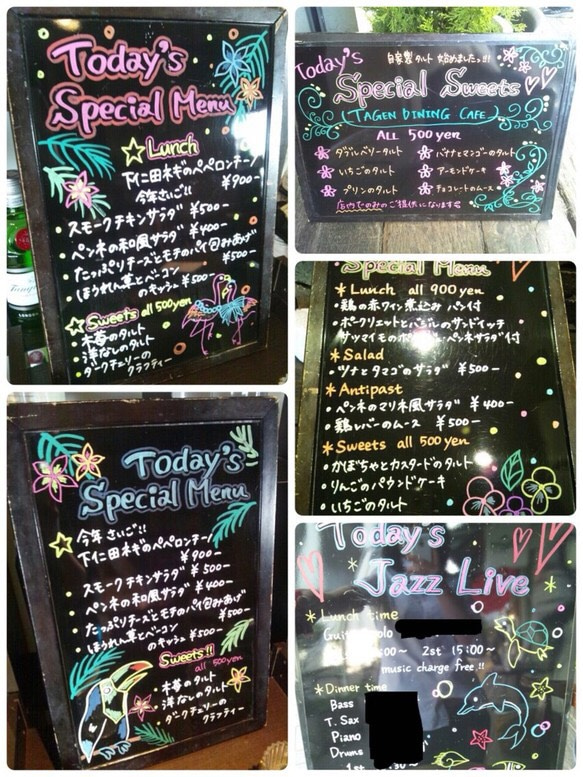 Today's
Special Menu
Lunch
下仁田ネギのペペロンチーノ
今年さいご!! ¥900-
スモークチキンサラダ ¥500-
ペンネの和風サラダ ¥400-
たっぷりチーズとモチのパイ包みあげ
¥500-
ほうれん草とベーコン
のキッシュ ¥500-
Sweets all 500yen
木苺のタルト
洋なしのタルト
ダークチェリーの
クラフティー
Today's
自家製タルト 始めました!!
Special Sweets
(TAGEN DINING CAFE)
ALL 500yen
ダブルベリータルト
バナナとマンゴーのタルト
いちごのタルト
アーモンドケーキ
プリンのタルト
チョコレートのムース
店内でのみのご提供になります
Special Menu
*Lunch all 900yen
・鶏の赤ワイン煮込み パン付
・ポークリエットとバジルのサンドイッチ
サツマイモのポ ペンネサラダ付
*Salad
・ツナとタマゴのサラダ ¥500-
*Antipast
・ペンネのマリネ風サラダ ¥400-
・鶏レバーのムース ¥500-
*Sweets all 500yen
・かぼちゃとカスタードのタルト
・りんごのパウンドケーキ
・いちごのタルト
Today's
Special Menu
今年さいご!!
下仁田ネギのペペロンチーノ
¥900-
スモークチキンサラダ ¥500-
ペンネの和風サラダ ¥400-
たっぷりチーズとモチのパイ包みあげ
¥500-
ほうれん草とベーコン
のキッシュ ¥500-
Sweets!!
all 500yen
・木苺のタルト
・洋なしのタルト
・ダークチェリーの
クラフティー
Today's
Jazz Live
*Lunch time
00~ 2st 15:00~
music charge free!!
*Dinner time
Bass
T. Sax
Piano
Drums